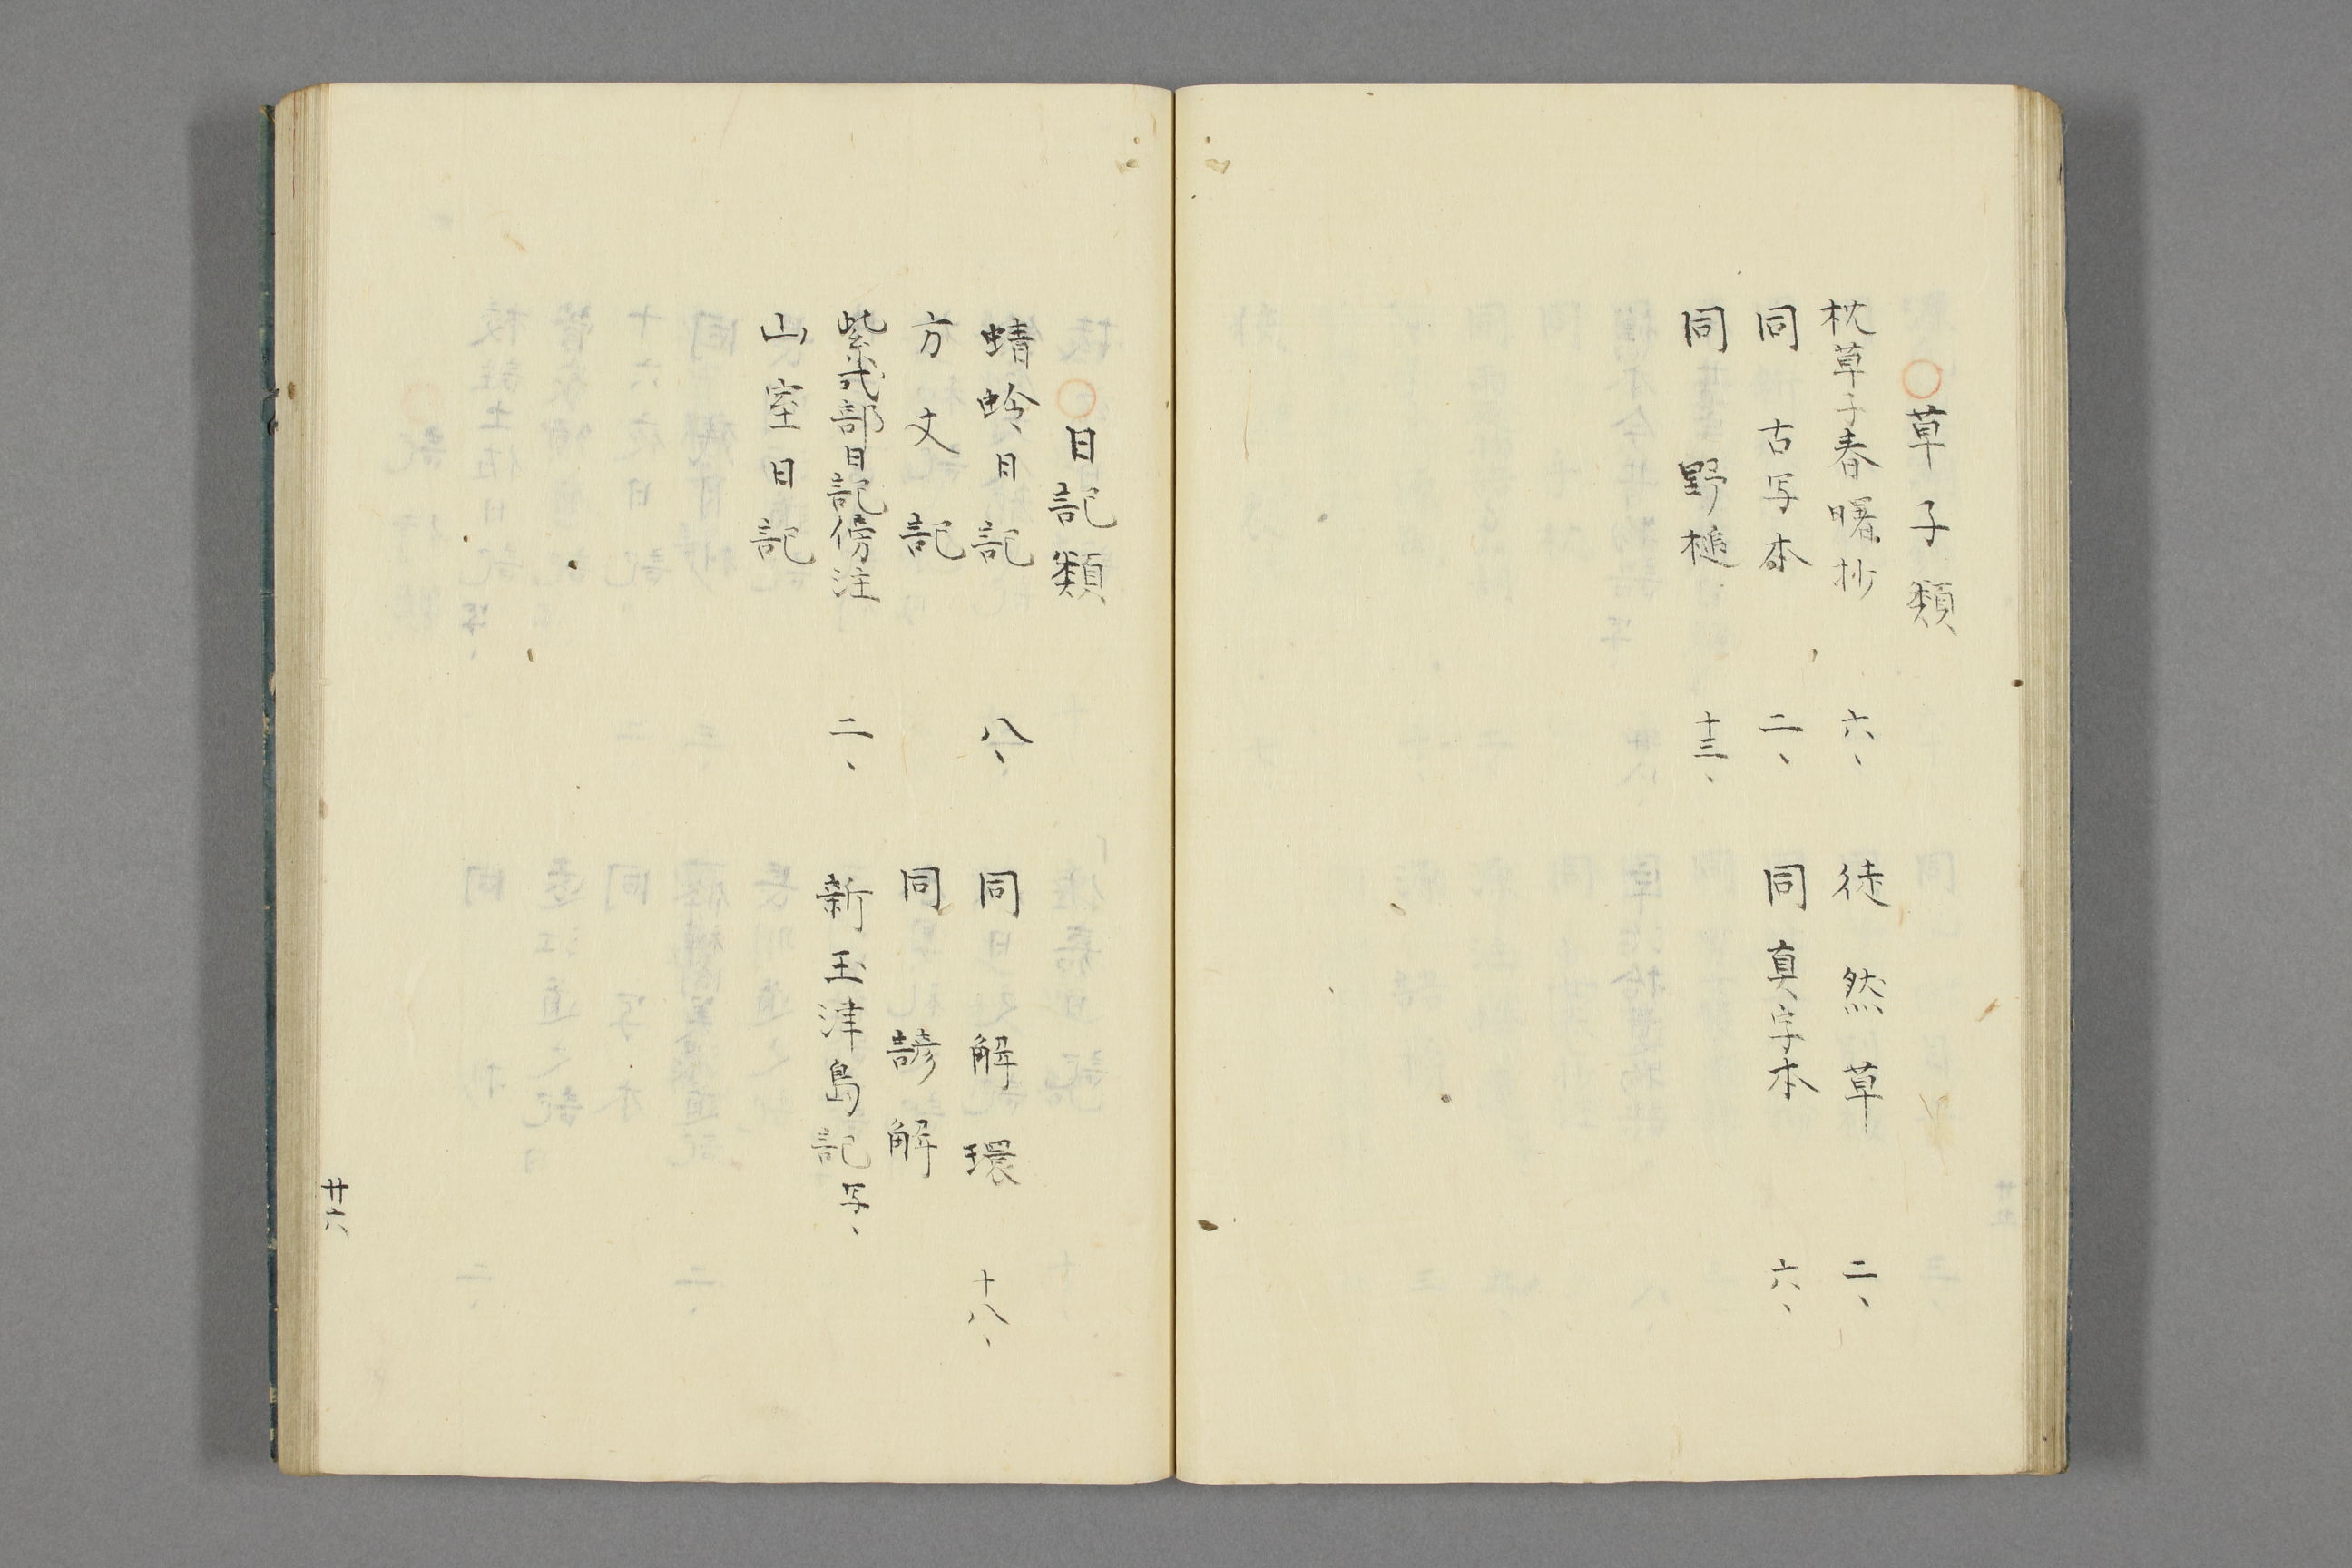 ○草子類
枕草子春曙抄 六、 徒然草 二、
同 古写本 二、 同真字本 六、
同 野槌 十三、
○日記類
蜻蛉日記 八、 同解環 十八、
方丈記 同諺解
紫式部日記傍注 二、 新玉津島記写、
山室日記
廿六